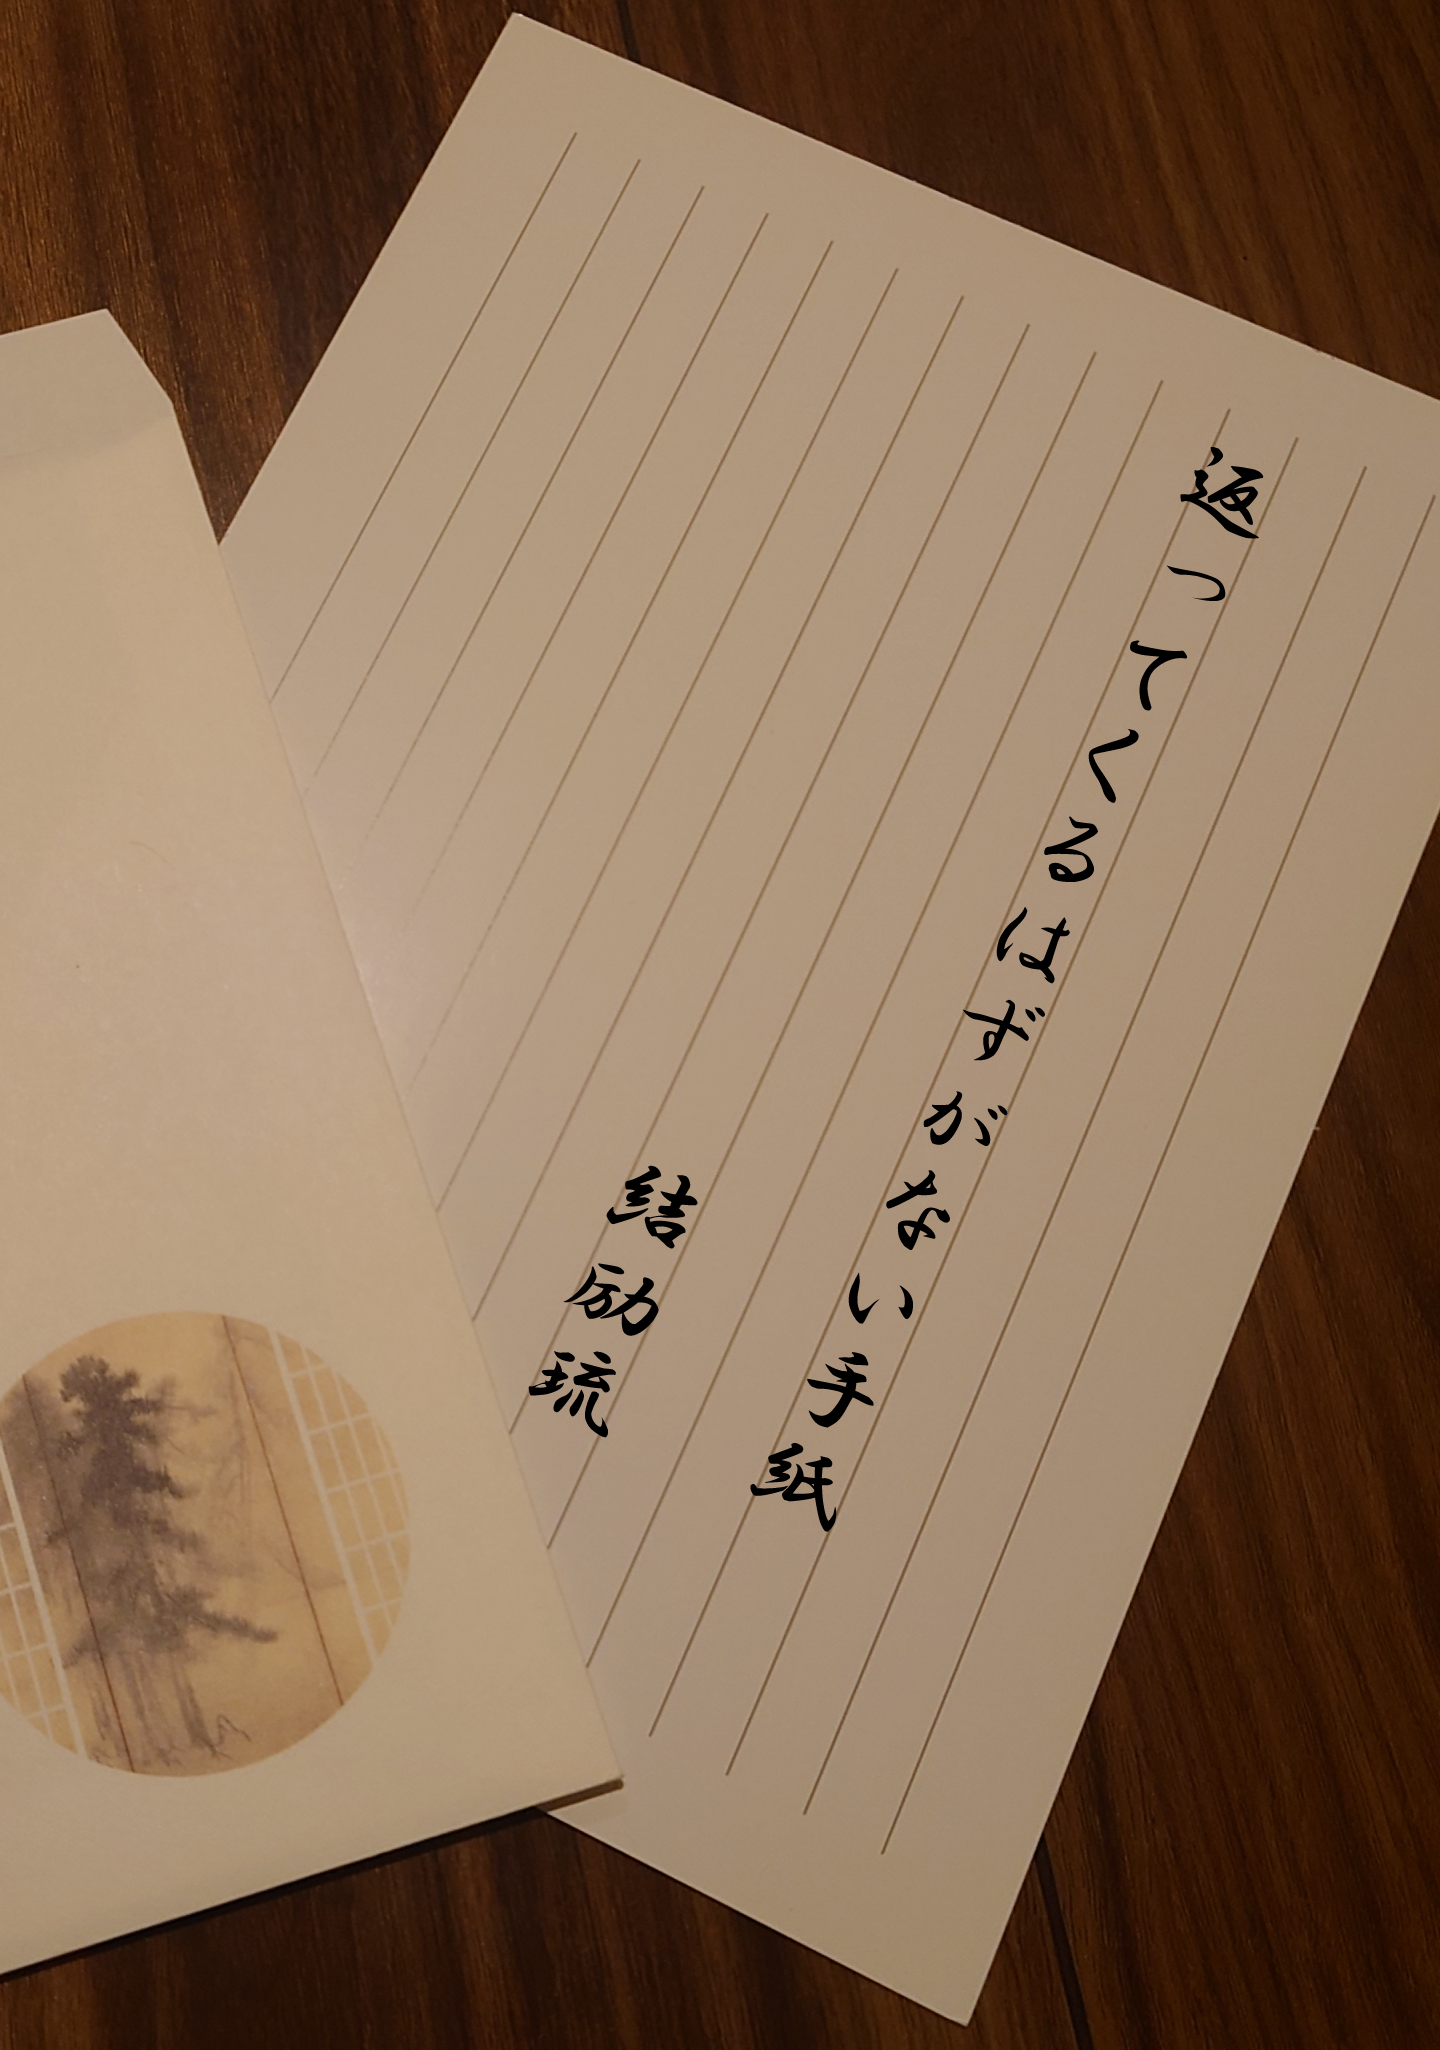 返ってくるはずがない手紙
結励琉